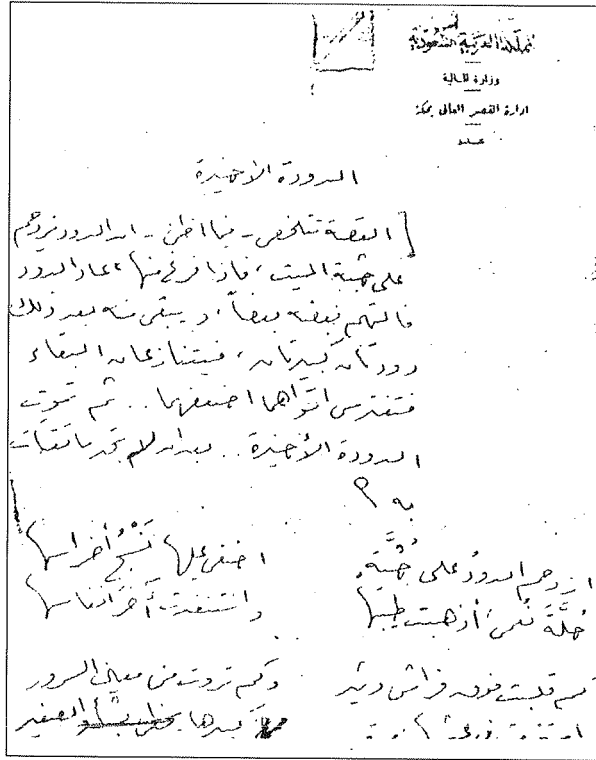 المملكة العربية السعودية
وزارة المالية
ادارة القصر العالي بمكة
الدودة الأخيرة
القصة تتلخص - فيما اظن - ان الدود يزدحم
على جثة الميت، فاذا فرغ منها، عاد الدود
فالتهم بعضه بعضاً، ويبقى منه بعد ذلك
دودتان كبيرتان، فيتنازعان البقاء
فتفترس اقواهما اضعفهما.. ثم تموت
الدودة الأخيرة.. بعد ان لم تجد ما تقتات
به ؟
ازدحم الدودُ على جُثَّةٍ اضفى عليها نَسْجُ أضراسها
حُلَّةَ نُعمى أذهبت طيبها واستنفدت آخر أنفاسها
كم قلبت فوق فراش وثير وكم تروت من معين السرور
كبدها الصغير